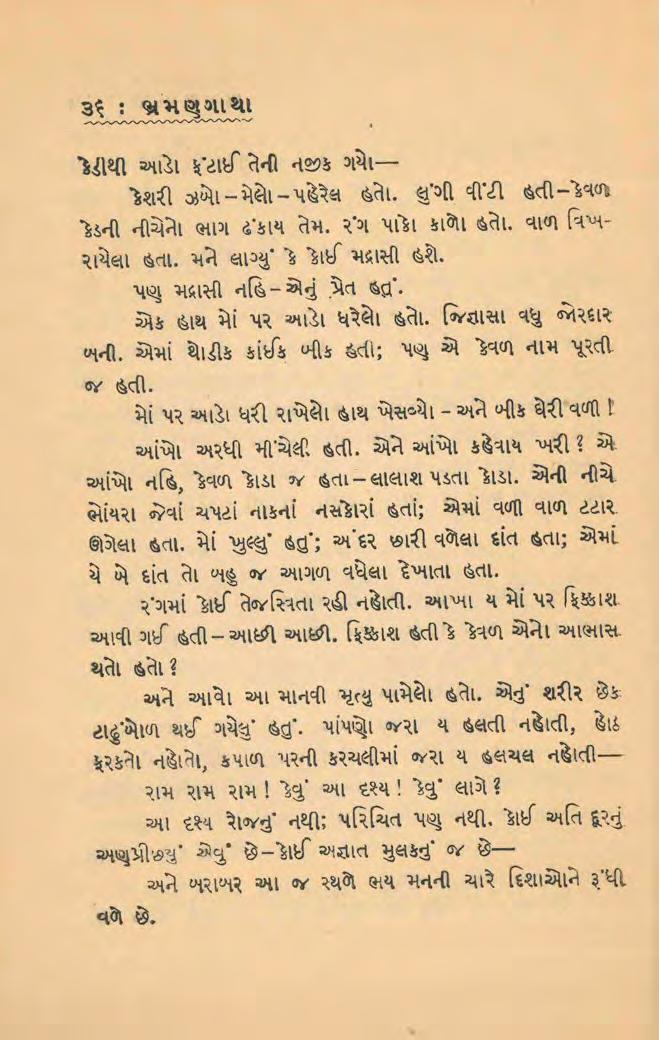 ૩૬ : ભ્રમણગાથા
કેડીથી આડો ફંટાઈ તેની નજીક ગયો—
કેશરી ઝબો – મેલો – પહેરેલ હતો. લુંગી વીંટી હતી – કેવળ
કેડની નીચેનો ભાગ ઢંકાય તેમ. રંગ પાકો કાળો હતો. વાળ વિખ-
રાયેલા હતા. મને લાગ્યું કે કોઈ મદ્રાસી હશે.
પણ મદ્રાસી નહિ – એનું પ્રેત હતું.
એક હાથ મોં પર આડો ધરેલો હતો. જિજ્ઞાસા વધુ જોરદાર
બની. એમાં થોડીક કાંઈક બીક હતી; પણ એ કેવળ નામ પૂરતી
જ હતી.
મોં પર આડો ધરી રાખેલો હાથ ખેસવ્યો – અને બીક ઘેરી વળી !
આંખો અરધી મીંચેલી હતી. એને આંખો કહેવાય ખરી ? એ
આંખો નહિ, કેવળ કોડા જ હતા – લાલાશ પડતા કોડા. એની નીચે
ભોંયરા જેવાં ચપટાં નાકનાં નસકોરાં હતાં; એમાં વળી વાળ ટટાર
ઊગેલા હતા. મોં ખુલ્લું હતું; અંદર છારી વળેલા દાંત હતા; એમાં
યે બે દાંત તો બહુ જ આગળ વધેલા દેખાતા હતા.
રંગમાં કોઈ તેજસ્વિતા રહી નહોતી. આખા ય મોં પર ફિક્કાશ
આવી ગઈ હતી – આછી આછી. ફિક્કાશ હતી કે કેવળ એનો આભાસ
થતો હતો ?
અને આવો આ માનવી મૃત્યુ પામેલો હતો. એનું શરીર છેક
ટાઢુંબોળ થઈ ગયેલું હતું. પાંપણો જરા ય હલતી નહોતી, હોઠ
ફરકતો નહોતો, કપાળ પરની કરચલીમાં જરા ય હલચલ નહોતી—
રામ રામ રામ ! કેવું આ દૃશ્ય ! કેવું લાગે ?
આ દૃશ્ય રોજનું નથી; પરિચિત પણ નથી. કોઈ અતિ દૂરનું
અણપ્રીછ્યું એવું છે – કોઈ અજ્ઞાત મુલકનું જ છે—
અને બરાબર આ જ સ્થળે ભય મનની ચારે દિશાઓને રૂંધી
વળે છે.